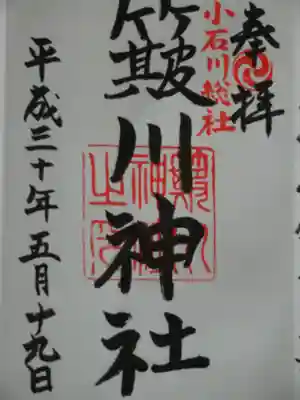 奉拝
小石川総社
簸川神社
平成三十年五月十九日